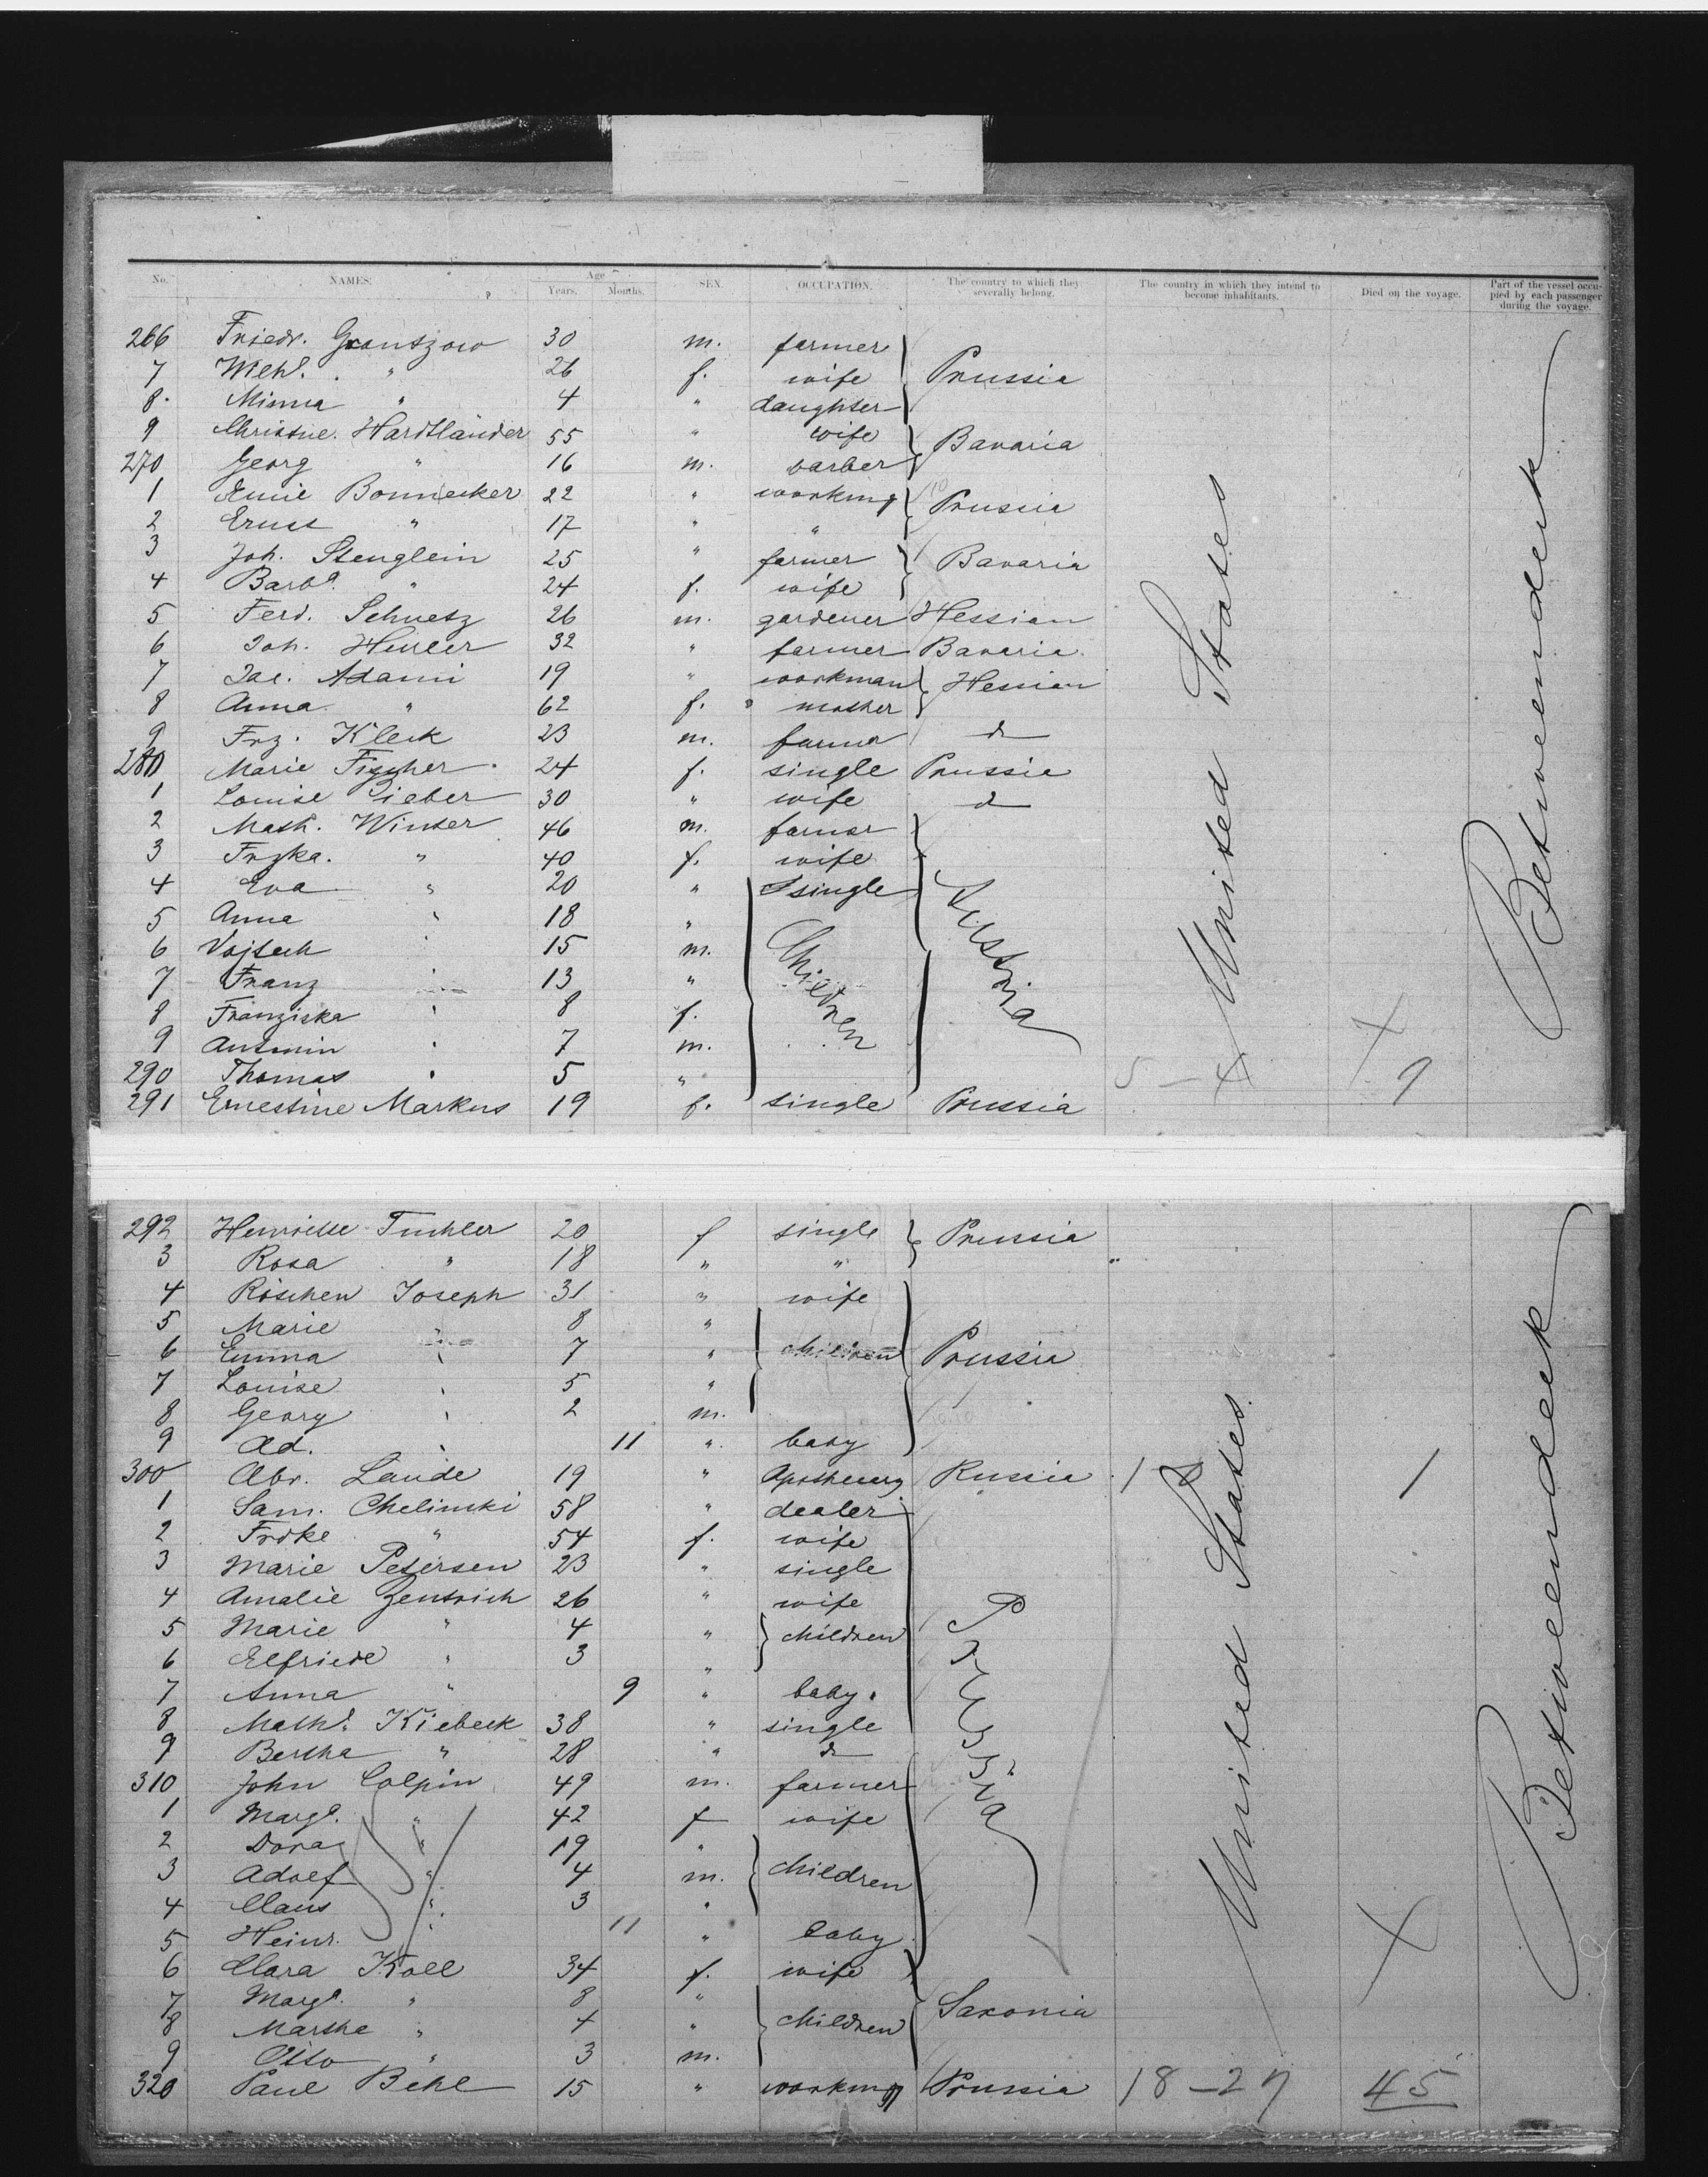 No. NAMES. Age Years. Months. SEX. OCCUPATION. The country to which they severally belong. The country in which they intend to become inhabitants. Died on the voyage. Part of the vessel occupied by each passenger during the voyage.
266 Friedr. Grantzow 30 m. farmer
7 Wilh. " 26 f. wife Prussia
8. Minna " 4 " daughter
9 Christne. Hardtländer 55 " wife Bavaria
270 Georg " 16 m. barber
1 Bonnecker 22 " working Prussia
2 Ernst " 17 " "
3 Joh. Stenglein 25 " farmer Bavaria
4 Barba. " 24 f. wife
5 Ferd. Schuetz 26 m. gardener Hessian
6 Joh. 32 " farmer Bavaria.
7 Jac. Adami 19 " workman Hessian
8 Anna " 62 f. mother
9 Frz. Kleck 23 m. farmer do
280 Marie Fischer 24 f. single Prussia
1 Louise Pieber 30 " wife do
2 Math. Winter 46 m. farmer
3 Frzka. " 40 f. wife
4 Eva " 20 " single Austria
5 Anna " 18 "
6 Vojtech " 15 m. Children
7 Franz " 13 "
8 Franziska " 8 f.
9 Antonin " 7 m.
290 Thomas " 5 " 5 – 4 9
291 Ernestine Markus 19 f. single Prussia
United States
Betweendeck
292 Henriette Tuchler 20 f single Prussia
3 Rosa " 18 " "
4 Röschen Joseph 31 " wife
5 Marie " 8 "
6 Emma " 7 " children Prussia
7 Louise " 5 "
8 Georg " 2 m.
9 Ad. " 11 " baby
300 Abr. Lande 19 " Apothecary Russia 1 1
1 Sam. Chelimski 58 " dealer
2 Frdke " 54 f. wife
3 Marie Petersen 23 " single
4 Amalie Zentrich 26 " wife Prussia
5 Marie " 4 " children
6 Elfriede " 3 "
7 Anna " 9 " baby.
8 Mathe. Kiebeck 38 " single
9 Bertha " 28 " do
310 John Colpin 49 m. farmer
1 Marga. " 42 f wife
2 Dora " 19 "
3 Adolf " 4 m. children
4 Claus " 3 "
5 Heinr. " 11 " baby
6 Clara Koll 34 f. wife
7 Marga. " 8 " Saxonia
8 Martha " 4 " children
9 Otto " 3 m.
320 Paul Behl 15 " working Prussia 18 – 27 45
United States
Betweendeck